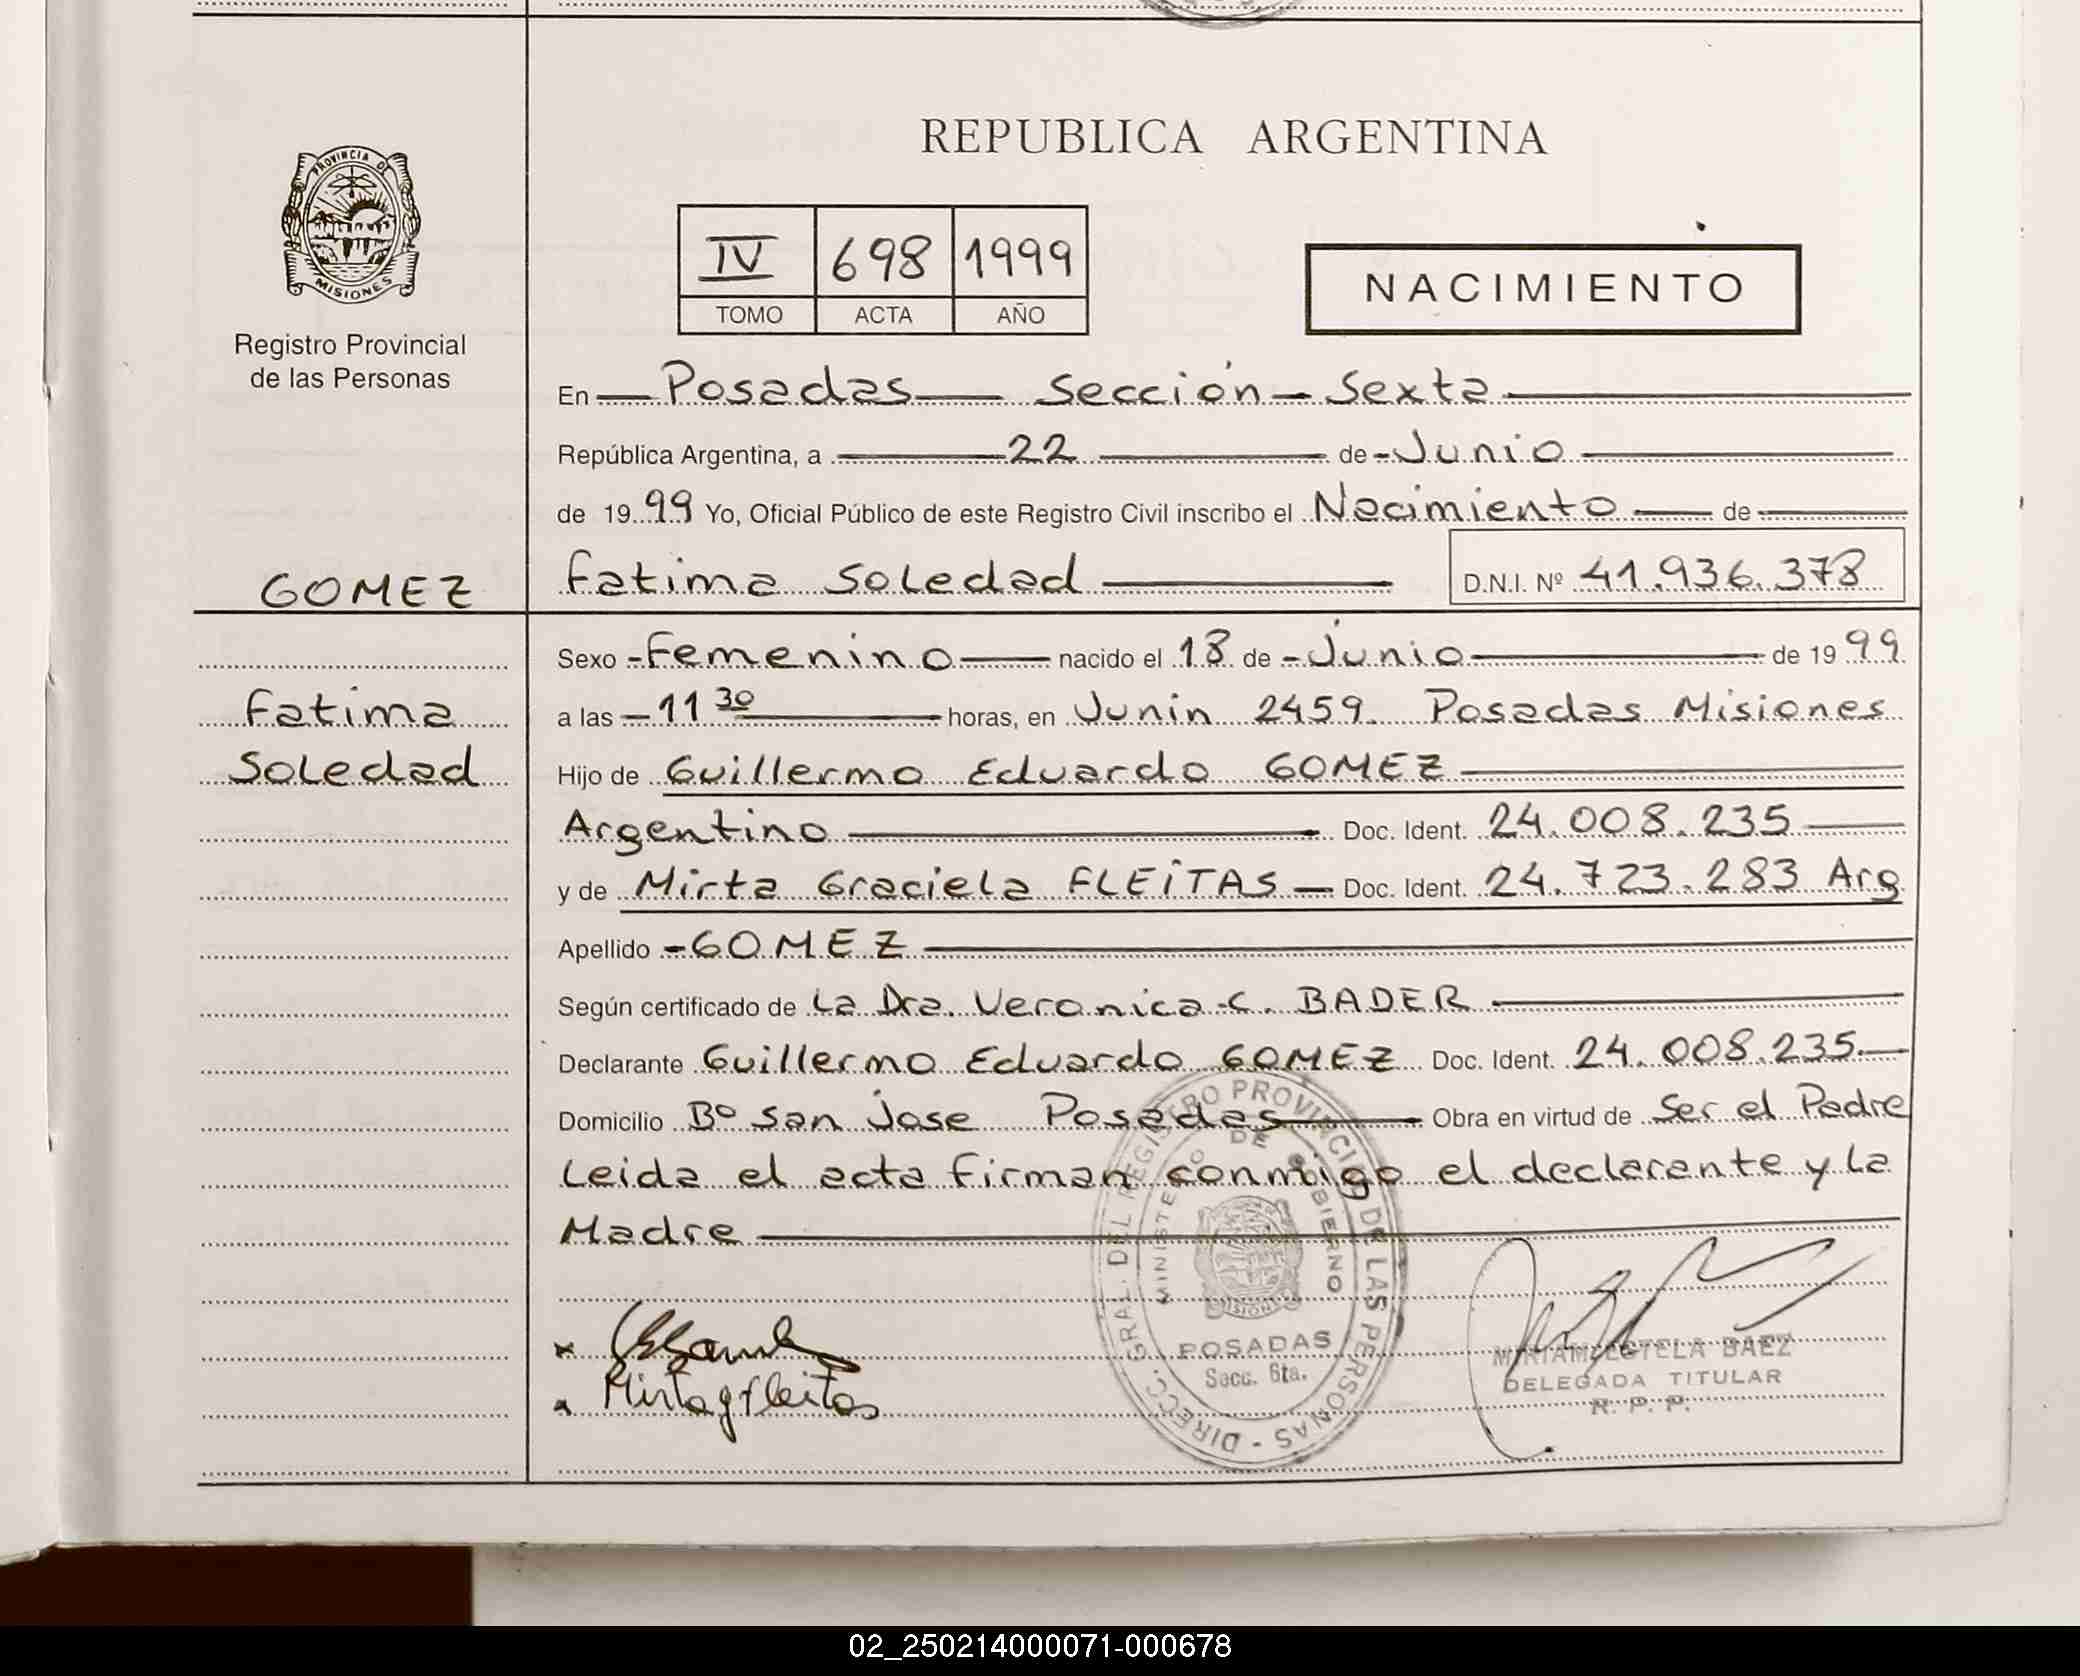 REPUBLICA ARGENTINA
PROVINCIA DE
MISIONES
Registro Provincial
de las Personas
IV 698 1999
TOMO ACTA AÑO
NACIMIENTO
En Posadas Sección Sexta
República Argentina, a 22 de Junio
de 1999 Yo, Oficial Público de este Registro Civil inscribo el Nacimiento de
GOMEZ
Fatima Soledad D.N.I. Nº 41.936.378
Sexo Femenino nacido el 18 de Junio de 1999
Fatima
Soledad
a las 11 30 horas, en Junin 2459. Posadas Misiones
Hijo de Guillermo Eduardo GOMEZ
Argentino Doc. Ident. 24.008.235
y de Mirta Graciela FLEITAS Doc. Ident. 24.723.283 Arg
Apellido GOMEZ
Según certificado de La Dra. Veronica C. BADER
Declarante Guillermo Eduardo GOMEZ Doc. Ident. 24.008.235
Domicilio Bº San Jose Posadas Obra en virtud de Ser el Padre
Leida el acta firman conmigo el declarante y la
Madre
DIRECC. GRAL. DEL REGISTRO PROVINCIAL DE LAS PERSONAS
MINISTERIO DE GOBIERNO
MISIONES
POSADAS
Secc. 6ta.
Mirta g fleitas
MIRIAM ESTELA BAEZ
DELEGADA TITULAR
R. P. P.
02_250214000071-000678